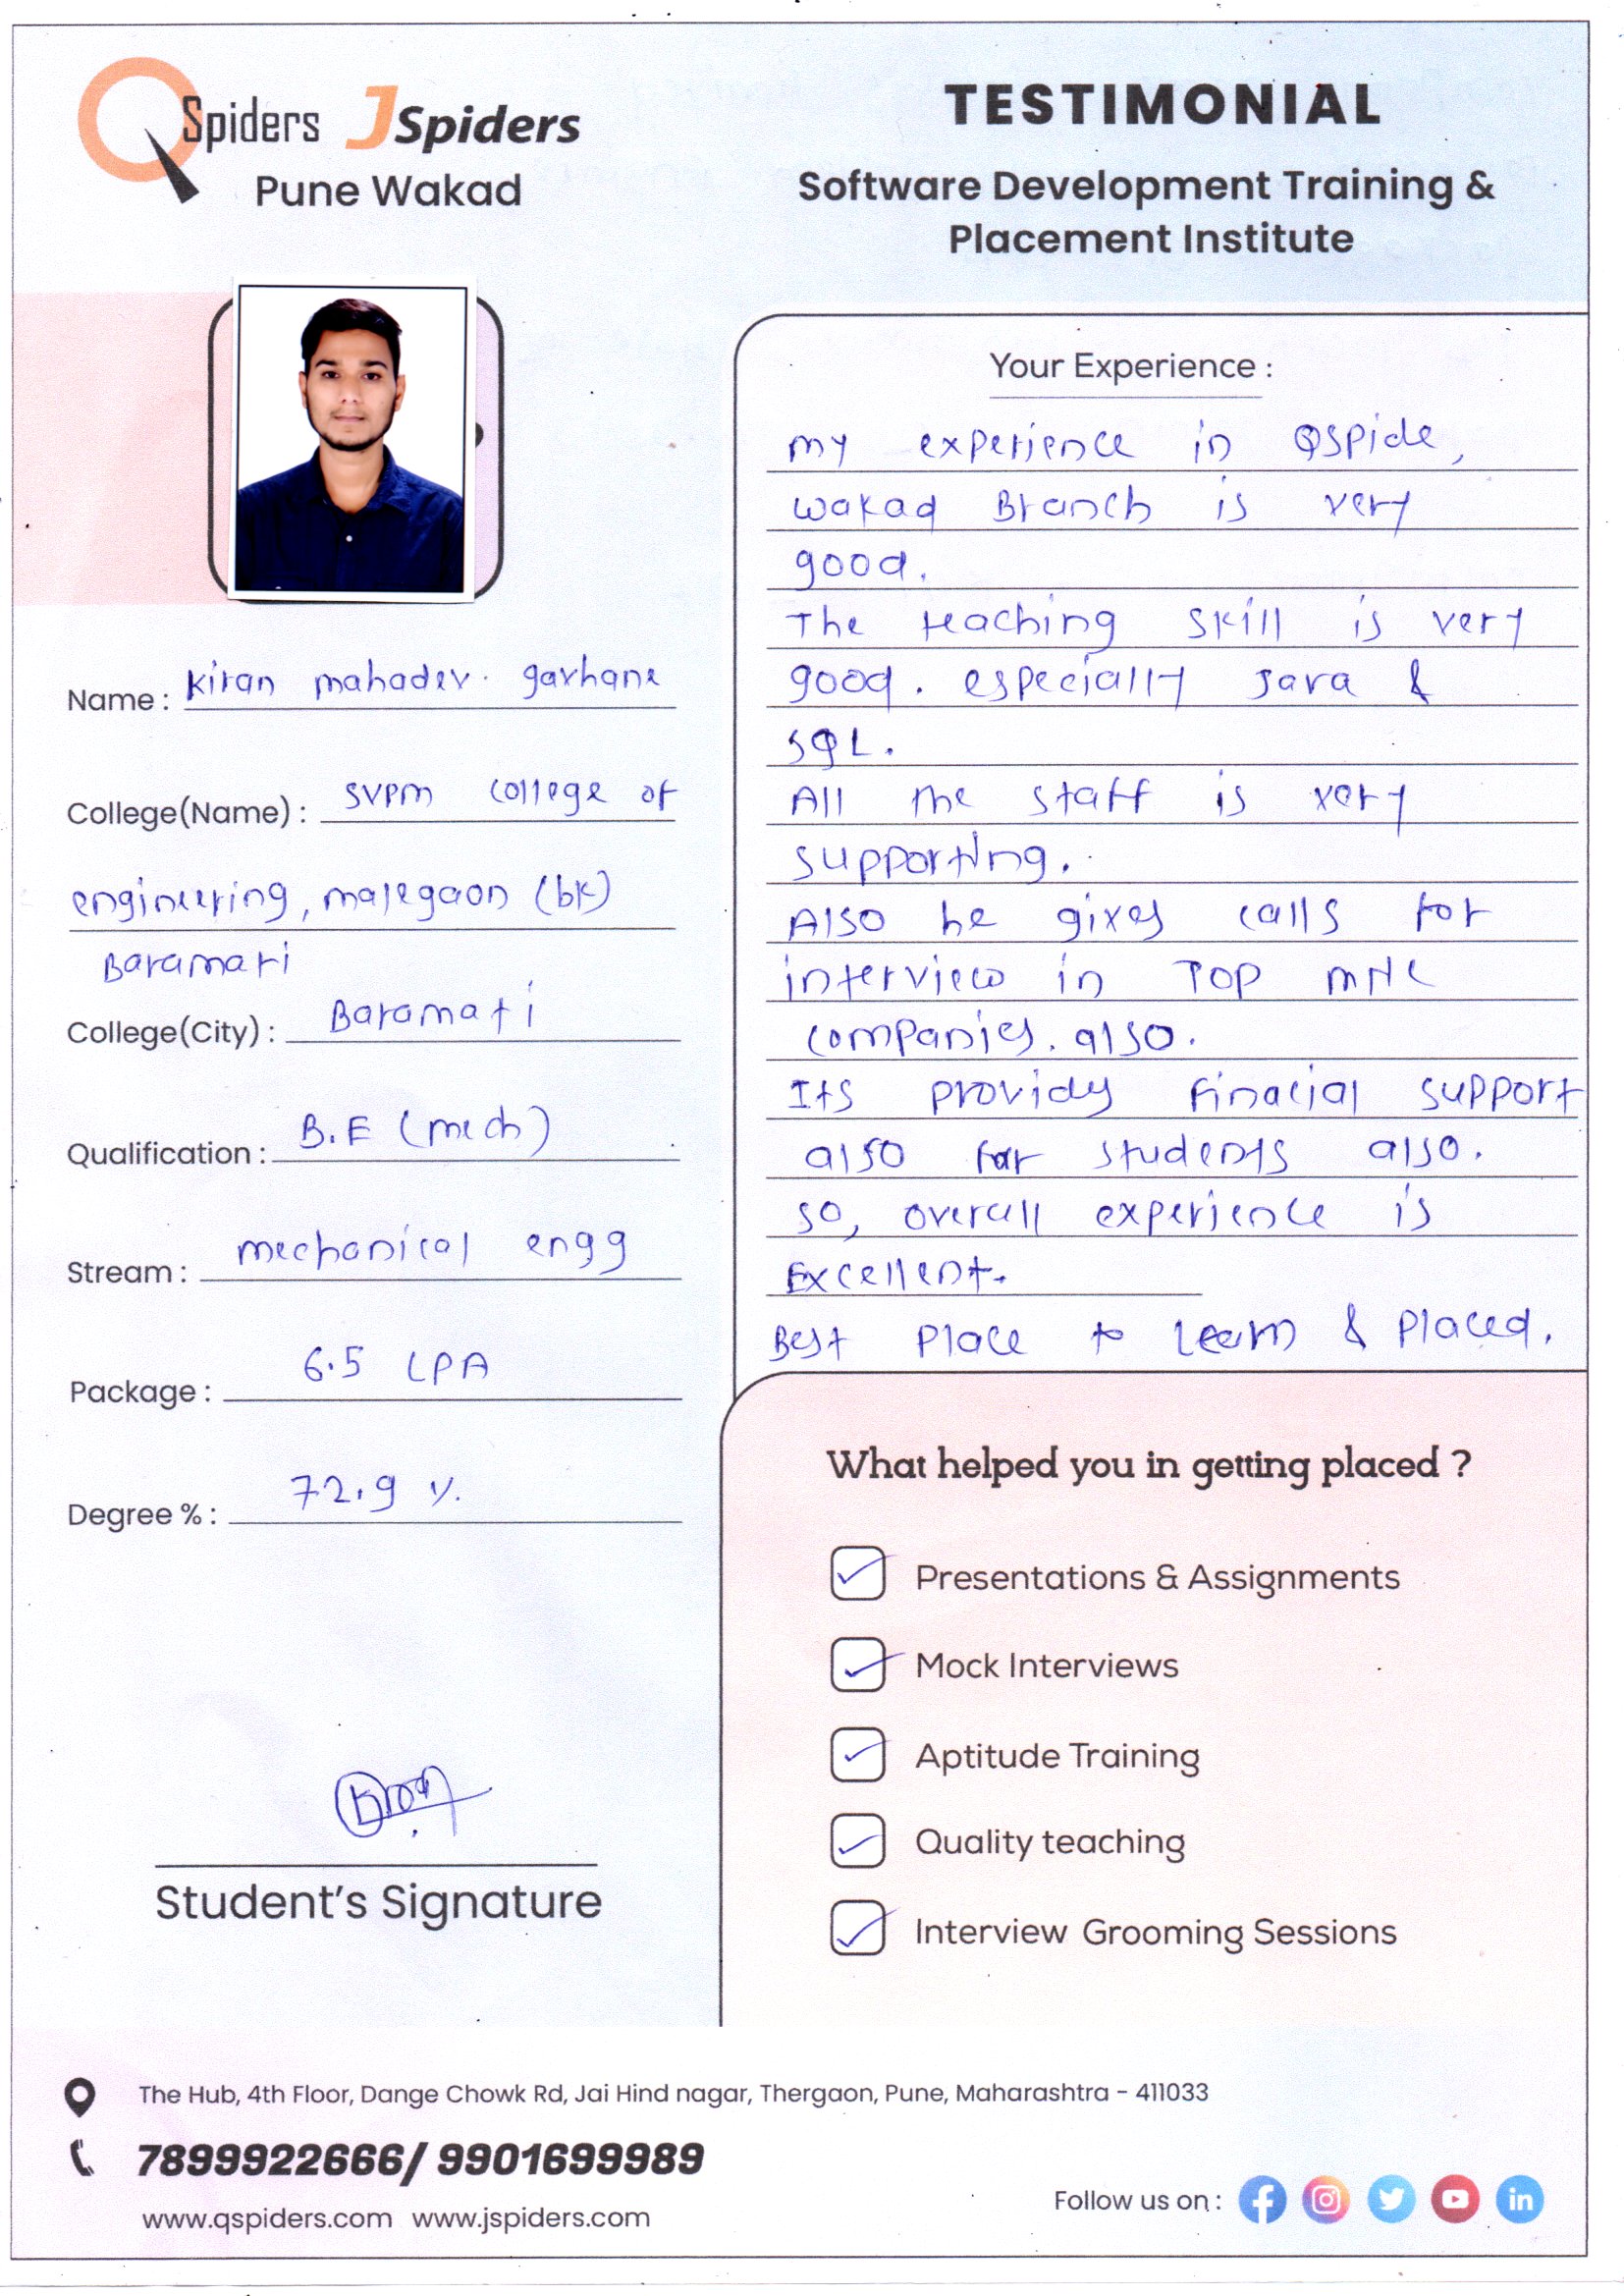 QSpiders JSpiders
Pune Wakad
TESTIMONIAL
Software Development Training &
Placement Institute
Name : kiran mahadev. gavhane
College(Name) : SVPM college of
engineering, malegaon (bk)
Baramati
College(City) : Baramati
Qualification : B.E (mech)
Stream : mechanical engg
Package : 6.5 LPA
Degree % : 72.9 %
Student's Signature
Your Experience :
my experience in QSpide,
wakad Branch is very
good.
The teaching skill is very
good. especially Java &
SQL.
All the staff is very
supporting.
Also he gives calls for
interview in TOP MNC
companies. also.
Its provides finacial support
also for students also.
so, overall experience is
Excellent.
Best place to learn & placed.
What helped you in getting placed ?
Presentations & Assignments
Mock Interviews
Aptitude Training
Quality teaching
Interview Grooming Sessions
The Hub, 4th Floor, Dange Chowk Rd, Jai Hind nagar, Thergaon, Pune, Maharashtra - 411033
7899922666/ 9901699989
www.qspiders.com www.jspiders.com
Follow us on :